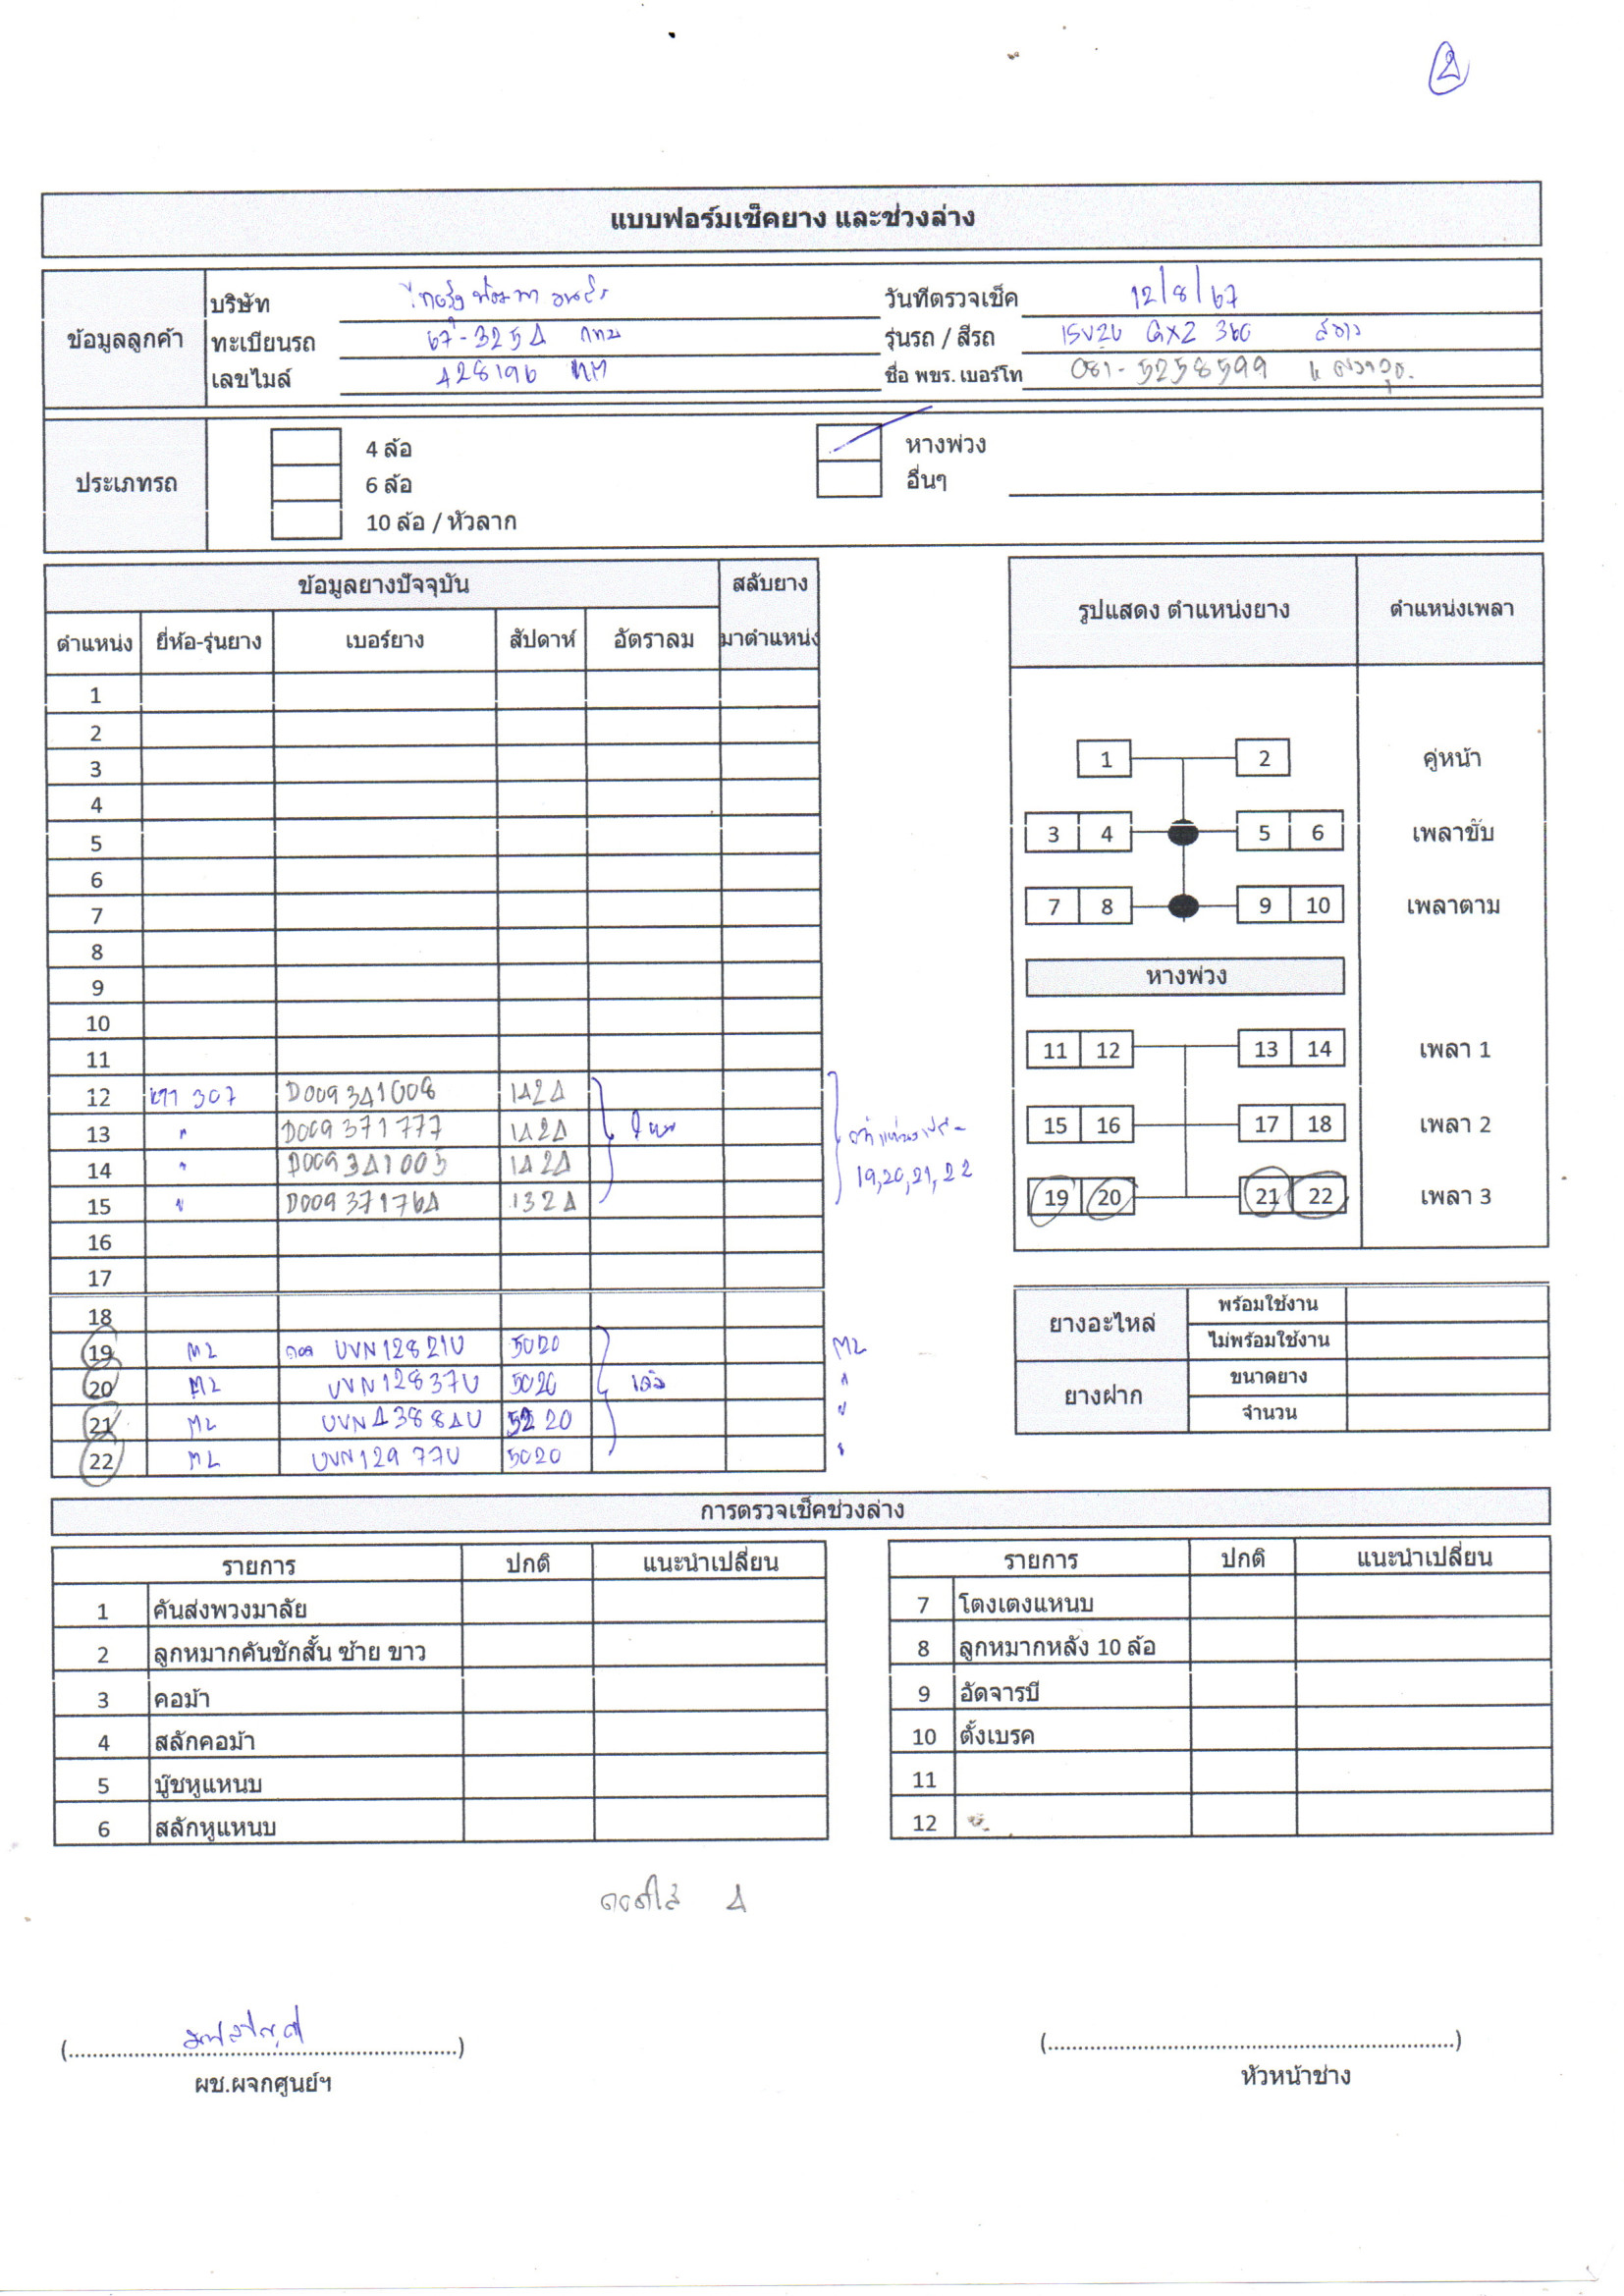 2
แบบฟอร์มเช็คยาง และช่วงล่าง
ข้อมูลลูกค้า
บริษัท
วันที่ตรวจเช็ค 12/8/67
ทะเบียนรถ 67-3254 กทม
รุ่นรถ / สีรถ ISUZU GXZ 360 สีขาว
เลขไมล์ 428196 KM
ชื่อ พขร. เบอร์โท 081-5258599
ประเภทรถ
4 ล้อ
หางพ่วง
6 ล้อ
อื่นๆ
10 ล้อ / หัวลาก
ข้อมูลยางปัจจุบัน สลับยาง
ตำแหน่ง ยี่ห้อ-รุ่นยาง เบอร์ยาง สัปดาห์ อัตราลม มาตำแหน่ง
1
2
3
4
5
6
7
8
9
10
11
12 307 D009341008 1424
13 " D009371777 1424 ใหม่
14 " D009341005 1424
15 " D009371764 1324
19,20,21,22
16
17
18
19 ML UVN12821U 5020 ML
20 ML UVN12837U 5020 เดิม "
21 ML UVN43884U 5220 "
22 ML UVN12977U 5020 "
รูปแสดง ตำแหน่งยาง ตำแหน่งเพลา
1 2 คู่หน้า
3 4 5 6 เพลาขับ
7 8 9 10 เพลาตาม
หางพ่วง
11 12 13 14 เพลา 1
15 16 17 18 เพลา 2
19 20 21 22 เพลา 3
ยางอะไหล่ พร้อมใช้งาน
ไม่พร้อมใช้งาน
ยางฝาก ขนาดยาง
จำนวน
การตรวจเช็คช่วงล่าง
รายการ ปกติ แนะนำเปลี่ยน
1 คันส่งพวงมาลัย
2 ลูกหมากคันชักสั้น ซ้าย ขาว
3 คอม้า
4 สลักคอม้า
5 บู๊ชหูแหนบ
6 สลักหูแหนบ
รายการ ปกติ แนะนำเปลี่ยน
7 โตงเตงแหนบ
8 ลูกหมากหลัง 10 ล้อ
9 อัดจารบี
10 ตั้งเบรค
11
12
4
(..............................)
ผช.ผจกศูนย์ฯ
(..............................)
หัวหน้าช่าง